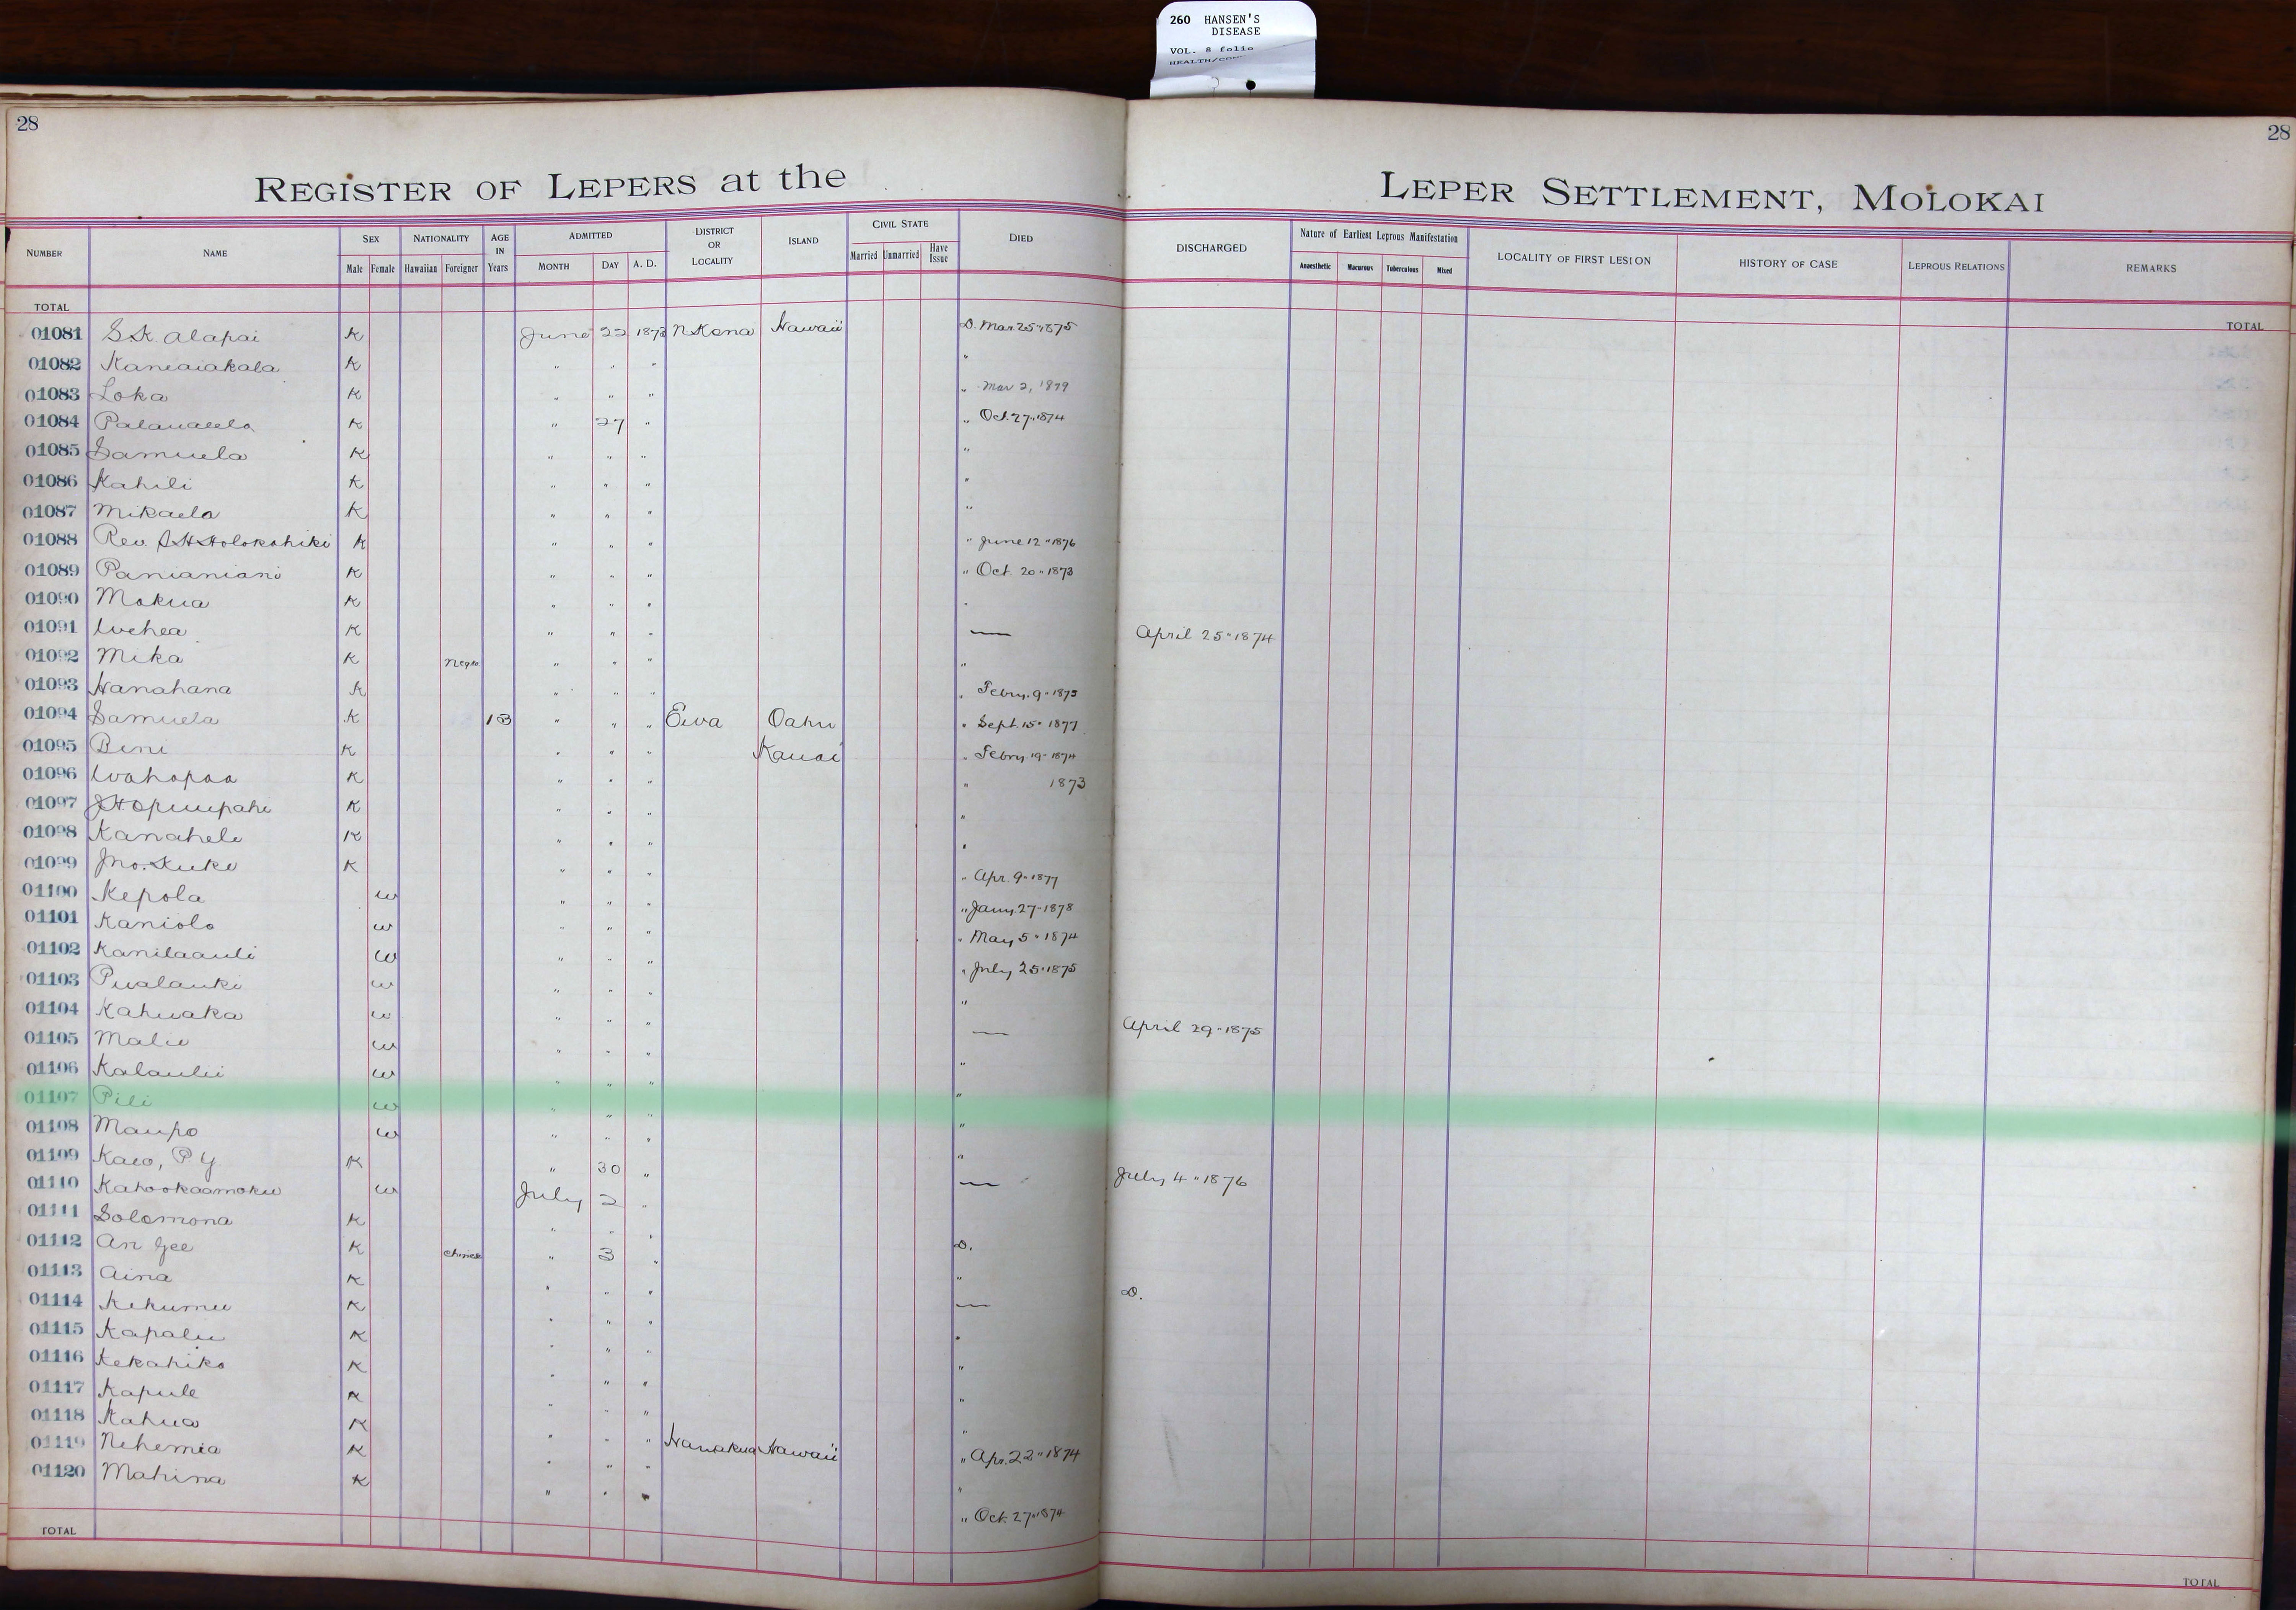 260 HANSEN'S
DISEASE
VOL. 8 folio
28 28
REGISTER OF LEPERS at the LEPER SETTLEMENT, MOLOKAI
NUMBER NAME SEX Male Female NATIONALITY Hawaiian Foreigner AGE IN Years ADMITTED MONTH DAY A. D. DISTRICT OR LOCALITY ISLAND CIVIL STATE Married Unmarried Have Issue DIED DISCHARGED Nature of Earliest Leprous Manifestation Anaesthetic Macurous Tuberculous Mixed LOCALITY OF FIRST LESION HISTORY OF CASE LEPROUS RELATIONS REMARKS
TOTAL TOTAL
01081 S.K. Alapai K June 22 1873 N Kona Hawaii D. Mar. 25 " 1875
01082 Kaneaiakala K " " " "
01083 Loka K " " " " Mar 2, 1879
01084 K " 27 " " Oct. 27 " 1874
01085 Samuela K " " " "
01086 Kahili K " " " "
01087 Mikaela K " " " "
01088 Rev. Holokahiki K " " " " June 12 " 1876
01089 Panianiani K " " " " Oct. 20 " 1873
01090 Mokua K " " " "
01091 K " " " — April 25 " 1874
01092 Mika K Negro " " " "
01093 Hanahana K " " " " Febry. 9 "
01094 Samuela K 13 " " " Ewa Oahu " Sept. 15 " 1877
01095 Beni K " " " Kauai " Febry 19 " 1874
01096 Wahapaa K " " " " 1873
01097 K " " " "
01098 Kanahele K " " " "
01099 Jno. K " " " " Apr. 9 " 1877
01100 Kepola w " " " " Jany. 27 " 1878
01101 Kaniolo w " " " " May 5 " 1874
01102 Kanilaauli w " " " " July 25 " 1875
01103 Pualauki w " " " "
01104 Kahuaka w " " " — April 29 " 1875
01105 Malie w " " " "
01106 Kalaulii w " " " "
01107 Pili w " " " "
01108 Maupo w " " " "
01109 Kaeo, P Y K " 30 " — July 4 " 1876
01110 Kahookaamoku w July 2 "
01111 Solomona K " " " D.
01112 An Gee K Chinese " 3 " "
01113 Aina K " " " — D.
01114 Kekumu K " " " "
01115 Kapalu K " " " "
01116 Kekahiko K " " " "
01117 Kapule K " " " "
01118 Kahua K " " " Hamakua Hawaii " Apr. 22 " 1874
01119 Nehemia K " " " "
01120 Mahina K " " " " Oct. 27 " 1874
TOTAL TOTAL